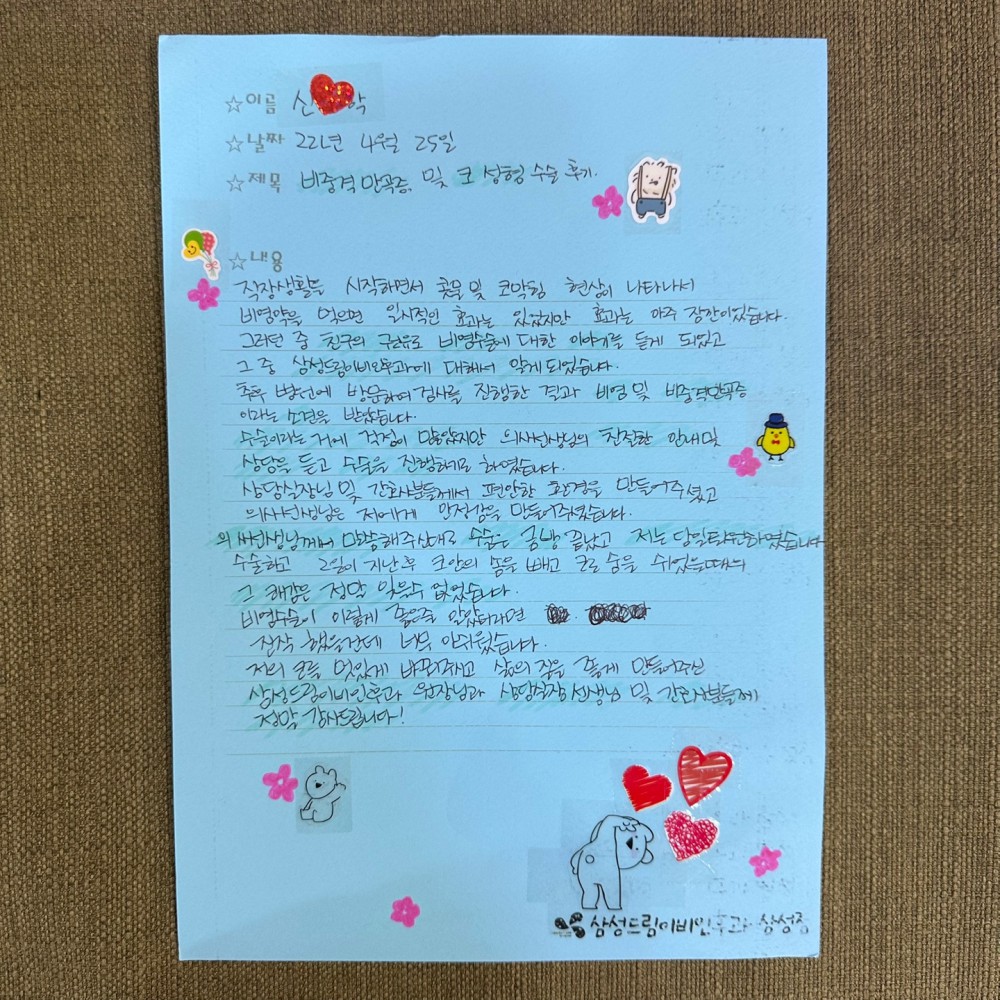 ☆이름 신 학
☆날짜 22년 4월 25일
☆제목 비중격 만곡증, 및 코 성형 수술 후기.
☆내용
직장생활을 시작하면서 콧물 및 코막힘 현상이 나타나서
비염약을 먹으면 일시적인 효과는 있었지만 효과는 아주 잠깐이었습니다.
그러던 중 친구의 권유로 비염수술에 대한 이야기를 듣게 되었고
그 중 삼성드림이비인후과에 대해서 알게 되었습니다.
추후 병원에 방문하여 검사를 진행한 결과 비염 및 비중격만곡증
이라는 소견을 받았습니다.
수술이라는 거에 걱정이 많았지만 의사선생님의 친절한 안내 및
상담을 듣고 수술을 진행하기로 하였습니다.
상담실장님 및 간호사분들께서 편안한 환경을 만들어주셨고
의사선생님은 저에게 안정감을 만들어주셨습니다.
의사선생님께서 말씀해주신대로 수술은 금방 끝났고 저는 당일퇴원하였습니다
수술하고 2일이 지난후 코안의 솜을 빼고 코로 숨을 쉬었을때의
그 쾌감은 정말 잊을수 없었습니다.
비염수술이 이렇게 좋은줄 알았더라면
진작 했을건데 너무 아쉬웠습니다.
저의 코를 멋있게 바꿔주시고 삶의 질을 좋게 만들어주신
삼성드림이비인후과 원장님과 상담실장 선생님 및 간호사분들께
정말 감사드립니다!
삼성드림이비인후과 삼성점